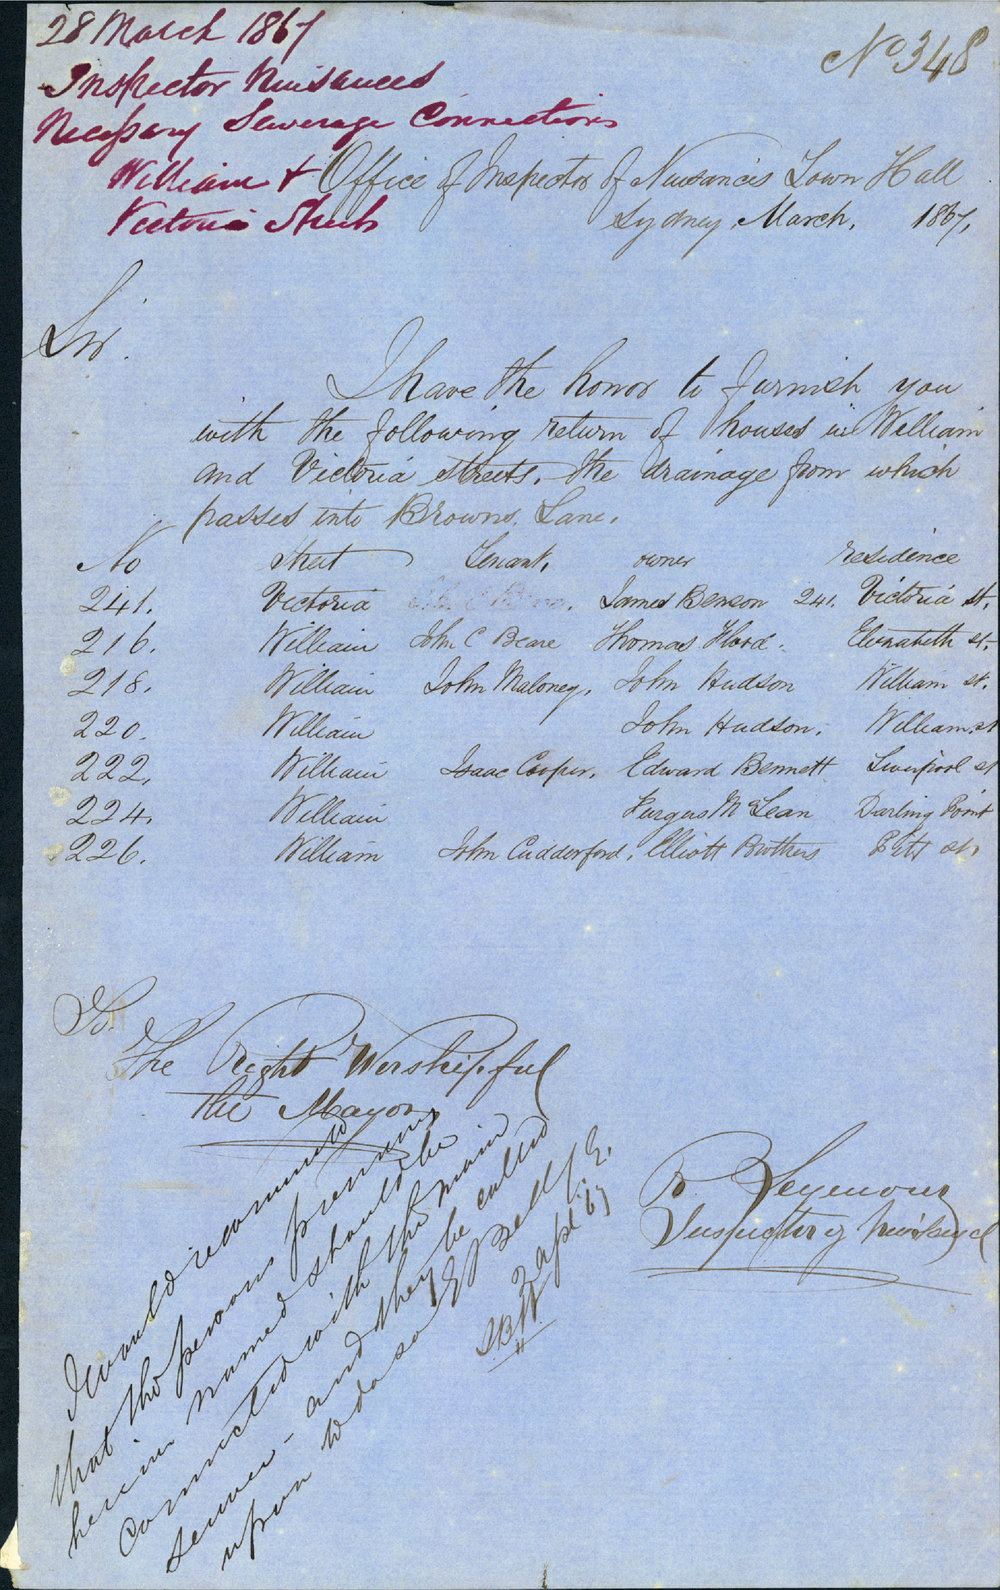 28 March 1867
Inspector Nuisances
Necessary Sewerage Connections
William &
Victoria Streets
No 348
Office of Inspector of Nuisances Town Hall
Sydney, March, 1867,
Sir.
I have the honor to furnish you
with the following return of houses in William
and Victoria streets, the drainage from which
passes into Browns, Lane,
No Street Tenant, owner residence
241. Victoria James Benson 241. Victoria st.
216. William John C Beare Thomas Hord. Elizabeth st.
218. William John Maloney, John Hudson William st.
220. William John Hudson, William st
222, William Isaac Cooper, Edward Bennett Liverpool st
224, William Fergus McLean Darling Point
226. William John Cudderford, Elliott Brothers Pitt st,
To.
The Right Worshipful
the Mayor
R Seymour
Inspector of Nuisances
I would recommend
that the persons premises
herein named should be
connected with the main
sewer - and they be called
upon to do so E Bell C.E.
2 Apl 67